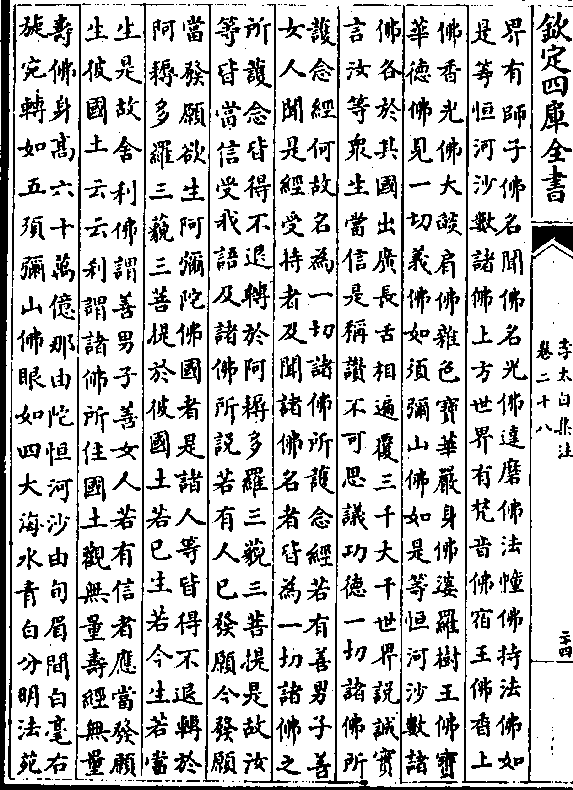 欽定四庫全書
李太白集注
卷二十八
二十四
界有師子佛名聞佛名光佛達磨佛法幢佛持法佛如
是等恒河沙數諸佛上方世界有梵音佛宿王佛香上
佛香光佛大燄肩佛雜色寶華嚴身佛娑羅樹王佛寶
華德佛見一切義佛如須彌山佛如是等恒河沙數諸
佛各於其國出廣長舌相遍覆三千大千世界說誠實
言汝等衆生當信是稱讚不可思議功德一切諸佛所
護念經何故名為一切諸佛所護念經若有善男子善
女人聞是經受持者及聞諸佛名者皆為一切諸佛之
所護念皆得不退轉於阿耨多羅三藐三菩提是故汝
等皆當信受我語及諸佛所說若有人已發願今發願
當發願欲生阿彌陀佛國者是諸人等皆得不退轉於
阿耨多羅三藐三菩提於彼國土若已生若今生若當
生是故舍利佛謂善男子善女人若有信者應當發願
生彼國土云云利謂諸佛所住國土觀無量壽經無量
壽佛身髙六十萬億那由陀恒河沙由旬眉間白毫右
旋宛轉如五須彌山佛眼如四大海水青白分明法苑